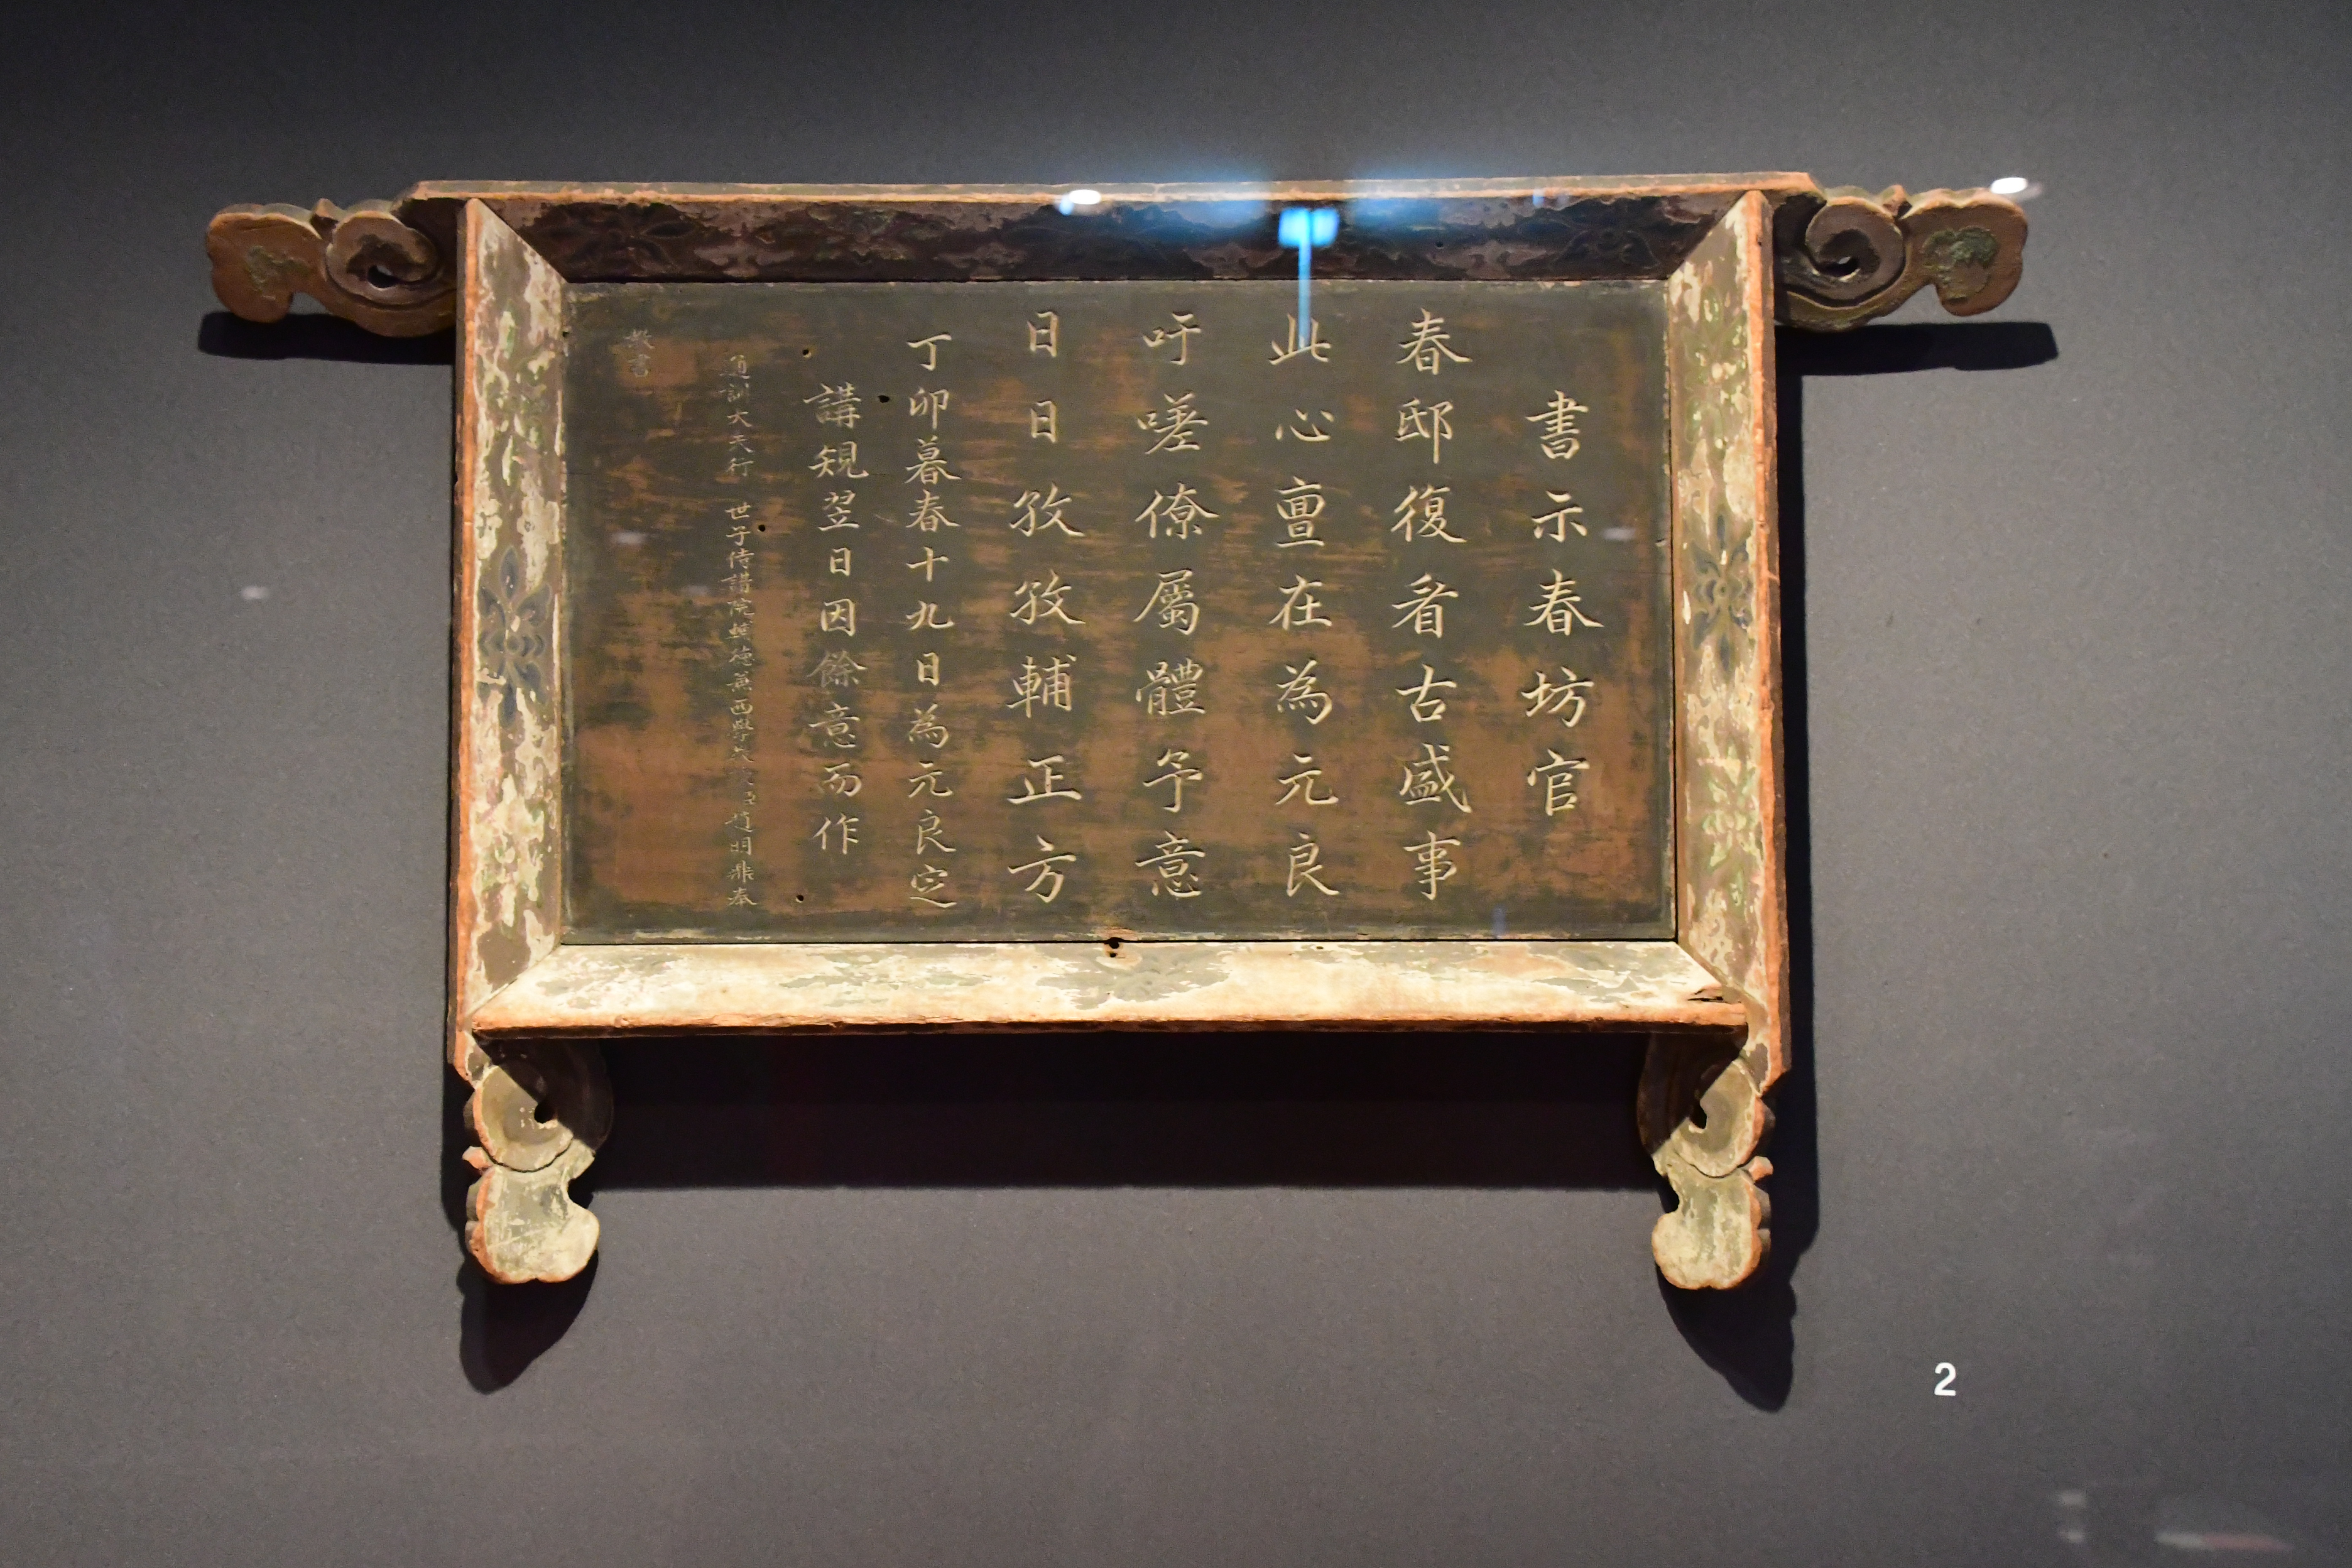 書示春坊官
春邸復看古盛事
此心亶在為元良
吁嗟僚屬體予意
日日孜孜輔正方
丁卯暮春十九日為元良定
講規翌日因餘意而作
通訓大夫行世子侍講院輔德兼西學教授臣趙明鼎奉
教書
2